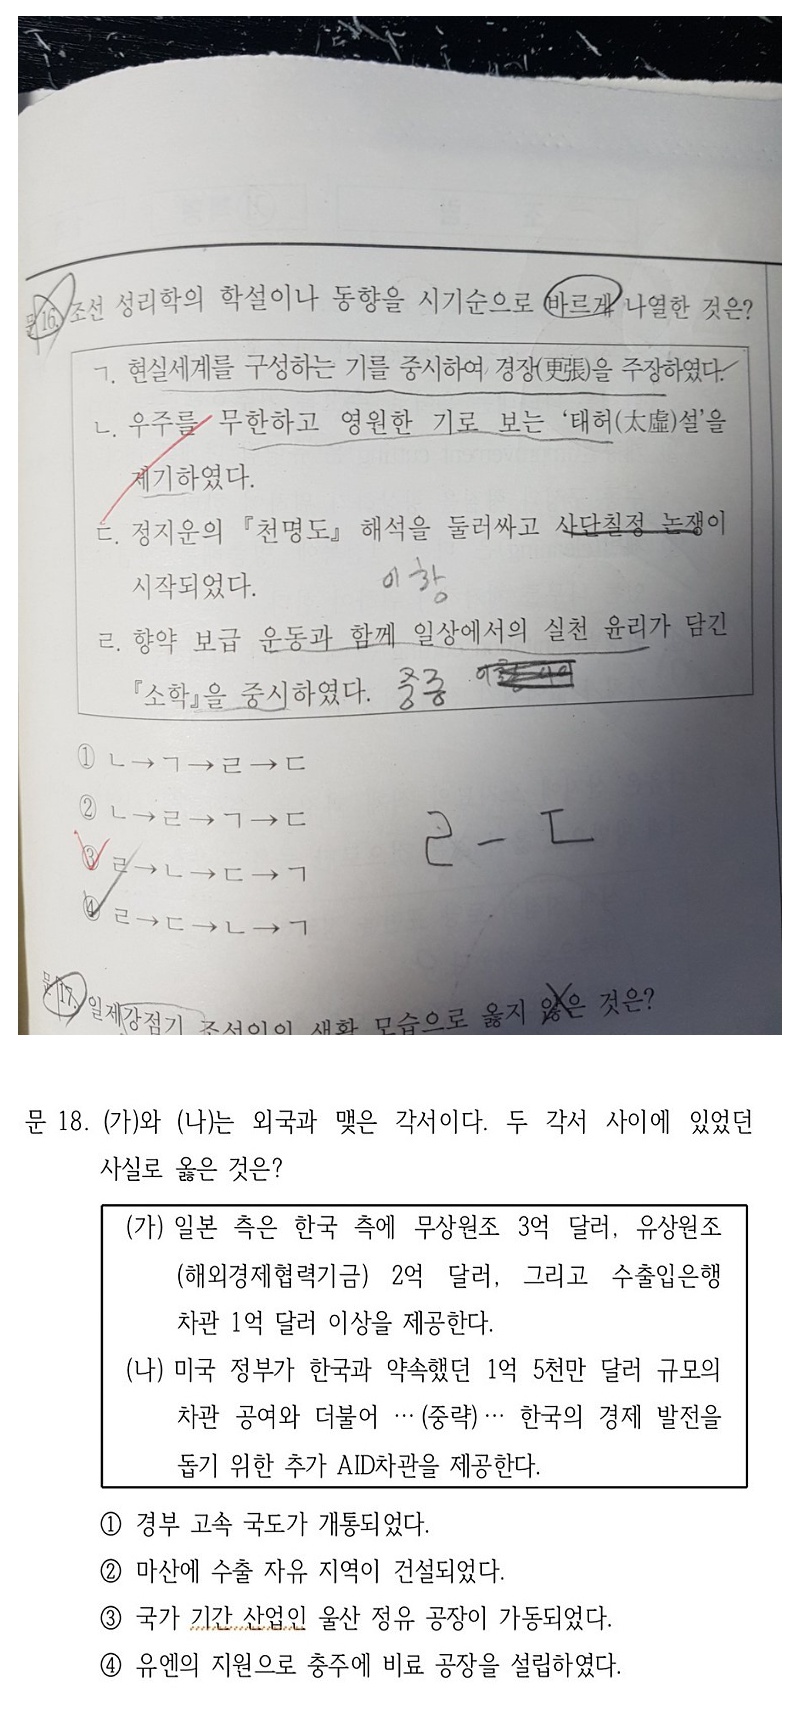 문16. 조선 성리학의 학설이나 동향을 시기순으로 바르게 나열한 것은?
ㄱ. 현실세계를 구성하는 기를 중시하여 경장(更張)을 주장하였다.
ㄴ. 우주를 무한하고 영원한 기로 보는 ‘태허(太虛)설’을
제기하였다.
ㄷ. 정지운의 『천명도』 해석을 둘러싸고 사단칠정 논쟁이
시작되었다.
이황
ㄹ. 향약 보급 운동과 함께 일상에서의 실천 윤리가 담긴
『소학』을 중시하였다. 중종
① ㄴ→ㄱ→ㄹ→ㄷ
② ㄴ→ㄹ→ㄱ→ㄷ
ㄹ - ㄷ
③ ㄹ→ㄴ→ㄷ→ㄱ
④ ㄹ→ㄷ→ㄴ→ㄱ
문17. 일제강점기 조선인의 생활 모습으로 옳지 않은 것은?
문 18. (가)와 (나)는 외국과 맺은 각서이다. 두 각서 사이에 있었던
사실로 옳은 것은?
(가) 일본 측은 한국 측에 무상원조 3억 달러, 유상원조
(해외경제협력기금) 2억 달러, 그리고 수출입은행
차관 1억 달러 이상을 제공한다.
(나) 미국 정부가 한국과 약속했던 1억 5천만 달러 규모의
차관 공여와 더불어 …(중략)… 한국의 경제 발전을
돕기 위한 추가 AID차관을 제공한다.
① 경부 고속 국도가 개통되었다.
② 마산에 수출 자유 지역이 건설되었다.
③ 국가 기간 산업인 울산 정유 공장이 가동되었다.
④ 유엔의 지원으로 충주에 비료 공장을 설립하였다.